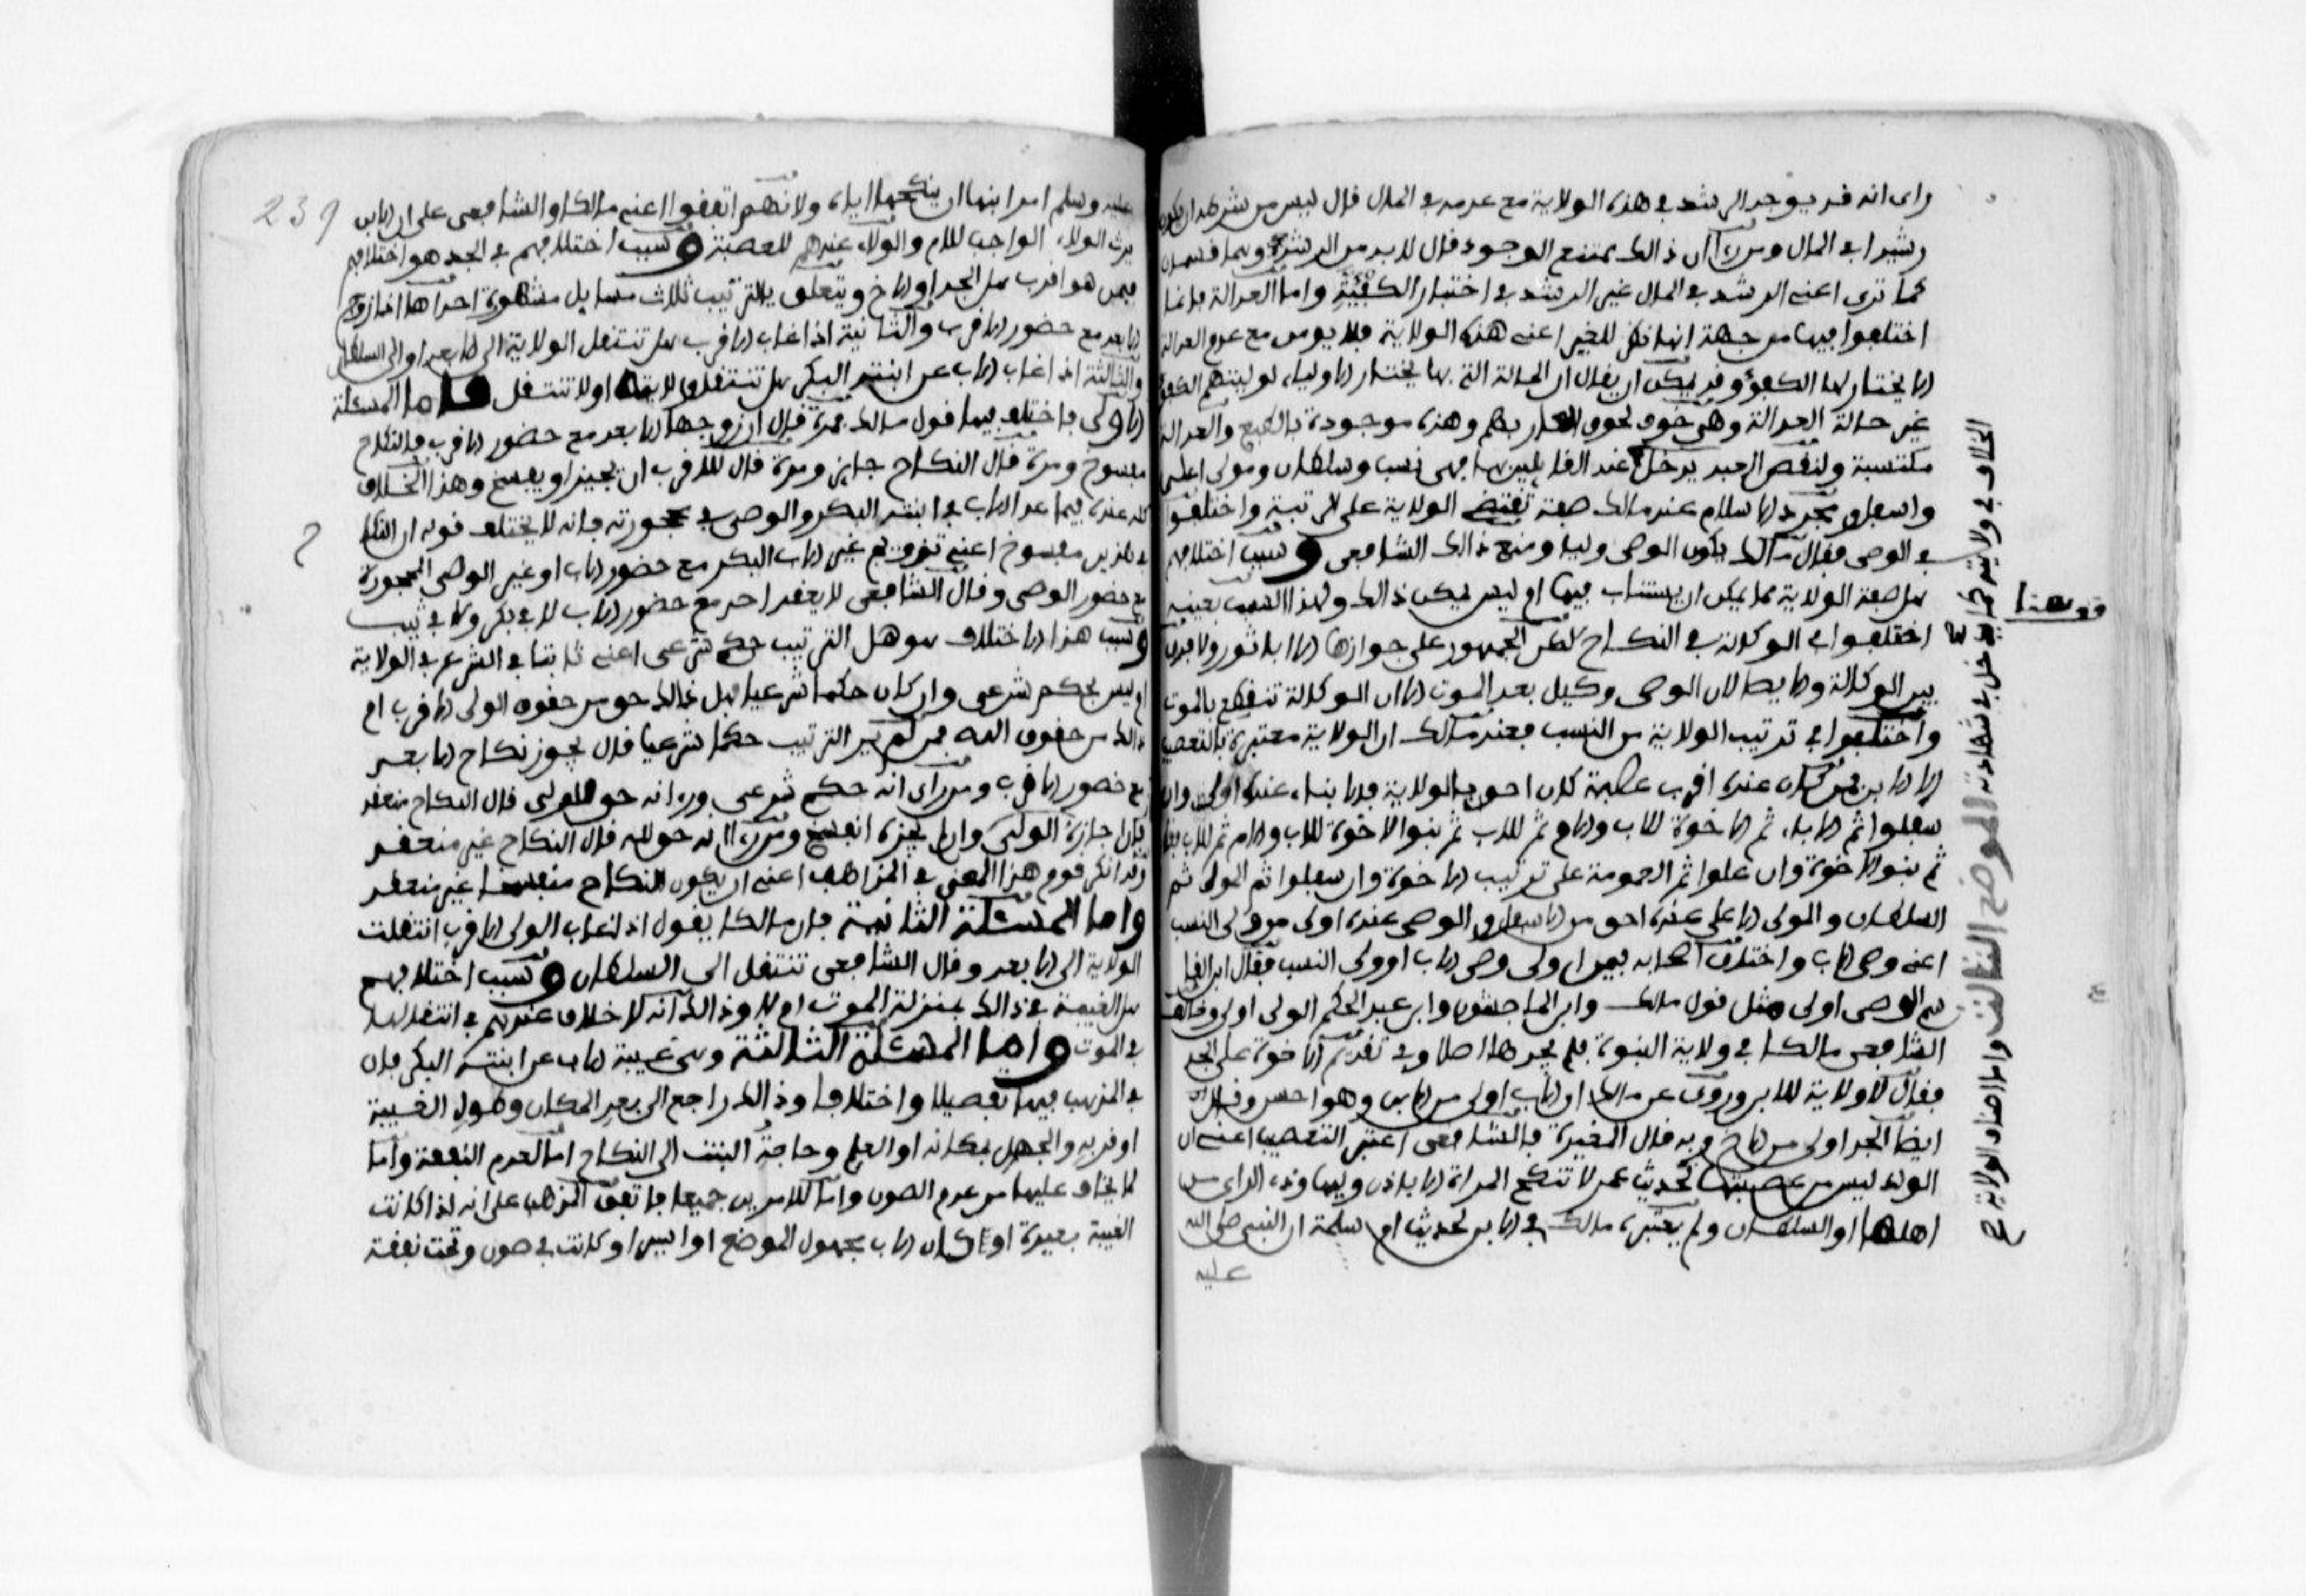 راى انه قد يوجد الرشد في هذه الولاية مع عدمه في المال قال ليس من شرطه ان يكون
رشيدا في المال ومن راى ان ذالك يمتنع الوجود قال لا بد من الرشد وهما قسمان
كما ترى اعني الرشد في المال غير الرشد في اختيار الكفية واما العدالة فانما
اختلفوا فيها من جهة انها نظر للغير اعني هذه الولاية فلا يومن مع عدم العدالة
الا يختار لها الكفؤ وقد يمكن ان يقال ان الحالة التي بها يختار الاولياء لوليتهم الكفؤ
غير حالة العدالة وهي خوف لحوق العار بهم وهذه موجودة بالطبع والعدالة
مكتسبة ولنقص العبد يدخل عند القايلين بها فهي نسب وسلطان ومولى اعلى
واسفل ومجرد الاسلام عند مالك صفة تقتضي الولاية على الدنية واختلفوا
في الوصي فقال مالك يكون الوصي وليا ومنع ذالك الشافعي وسبب اختلافهم
هل صفة الولاية مما يمكن ان يستناب فيها ام ليس يمكن ذالك ولهذا السبب بعينه
اختلفوا في الوكالة في النكاح لكن الجمهور على جوازها الا ابا ثور ولا فرق
بين الوكالة والايصا لان الوصي وكيل بعد الموت الا ان الوكالة تنقطع بالموت
واختلفوا في ترتيب الولاية من النسب فعند مالك ان الولاية معتبرة بالتعصيب
الا الابن فمن كان عنده اقرب عصبة كان احق بالولاية فالابناء عنده اولى وان
سفلوا ثم الاباء ثم الاخوة للاب والام ثم للاب ثم بنوا الاخوة للاب والام ثم للاب
ثم بنوا الاخوة وان علوا ثم العمومة على ترتيب الاخوة وان سفلوا ثم المولى ثم
السلطان والمولى الاعلى عنده احق من الاسفل والوصي عنده اولى من ولي النسب
اعني وصي الاب واختلف اصحابه فيمن اولى وصي الاب او ولي النسب فقال ابن القا
سم الوصي اولى مثل قول مالك وابن الماجشون وابن عبد الحكم الولي اولى وخالف
الشافعي مالكا في ولاية البنوة فلم يجزها اصلا وفي تقديم الاخوة على الجد
فقال لا ولاية للابن وروي عن مالك ان الاب اولى من الابن وهو احسن وقال
ايضا الجد اولى من الاخ وبه قال المغيرة فالشافعي اعتبر التعصيب اعني ان
الولد ليس من عصبتها لحديث عمر لا تنكح المراة الا باذن وليها وذي الراى من
اهلها او السلطان ولم يعتبره مالك في الابن لحديث ام سلمة ان النبي صلى الله
عليه
قوه هنا
الموضع الثالث واما اصناف الولاية
عليه وسلم امر ابنها ان ينكحها اياه ولانهم اتفقوا اعني مالكا والشافعي على ان الابن
يرث الولاء الواجب للام والولاء عندهم للعصبة وسبب اختلافهم في الجد هو اختلافهم
فيمن هو اقرب هل الجد او الاخ ويتعلق بالترتيب ثلاث مسايل مشهورة احداها اذا زوج
الابعد مع حضور الاقرب والثانية اذا غاب الاقرب هل تنتقل الولاية الى الابعد او الى السلطان
والثالثة اذا غاب الاب عن ابنته البكر هل تنتقل الولاية او لا تنتقل فاما المسئلة
الاولى فاختلف فيها قول مالك فمرة قال ان زوجها الابعد مع حضور الاقرب فالنكاح
مفسوخ ومرة قال النكاح جايز ومرة قال للاقرب ان يجيز او يفسخ وهذا الخلاف
كله عنده فيما عدا الاب في ابنته البكر والوصي في محجورته فانه لا يختلف قوله ان النكاح
في هذين مفسوخ اعني تزويج غير الاب البكر مع حضور الاب او غير الوصي المحجورة
مع حضور الوصي وقال الشافعي لا يعقد احد مع حضور الاب لا في بكر ولا في ثيب
وسبب هذا الاختلاف هو هل الترتيب حكم شرعي اعني ثابتا في الشرع في الولاية
ام ليس بحكم شرعي وان كان حكما شرعيا هل ذالك حق من حقوق الولي الاقرب ام
ذالك من حقوق الله فمن لم ير الترتيب حكما شرعيا قال يجوز نكاح الابعد
مع حضور الاقرب ومن راى انه حكم شرعي وراى انه حق للولي قال النكاح منعقد
فان اجازه الولي وان لم يجزه انفسخ ومن راى انه حق لله قال النكاح غير منعقد
وقد انكر قوم هذا المعنى في المذاهب اعني ان يكون النكاح منفسخا غير منعقد
واما المسئلة الثانية فان مالكا يقول اذا غاب الولي الاقرب انتقلت
الولاية الى الابعد وقال الشافعي تنتقل الى السلطان وسبب اختلافهم
هل الغيبة في ذالك بمنزلة الموت ام لا وذالك انه لا خلاف عندهم في انتقالها
في الموت واما المسئلة الثالثة وهي غيبة الاب عن ابنته البكر فان
في المذهب فيها تفصيلا واختلافا وذالك راجع الى بعد المكان وطول الغيبة
او قربه والجهل بمكانه او العلم وحاجة البنت الى النكاح اما لعدم النفقة واما
لما يخاف عليها من عدم الصون واما للامرين جميعا فاتفق المذهب على انه اذا كانت
الغيبة بعيدة او كان الاب مجهول الموضع او اسير او كانت في صون وتحت نفقة
239